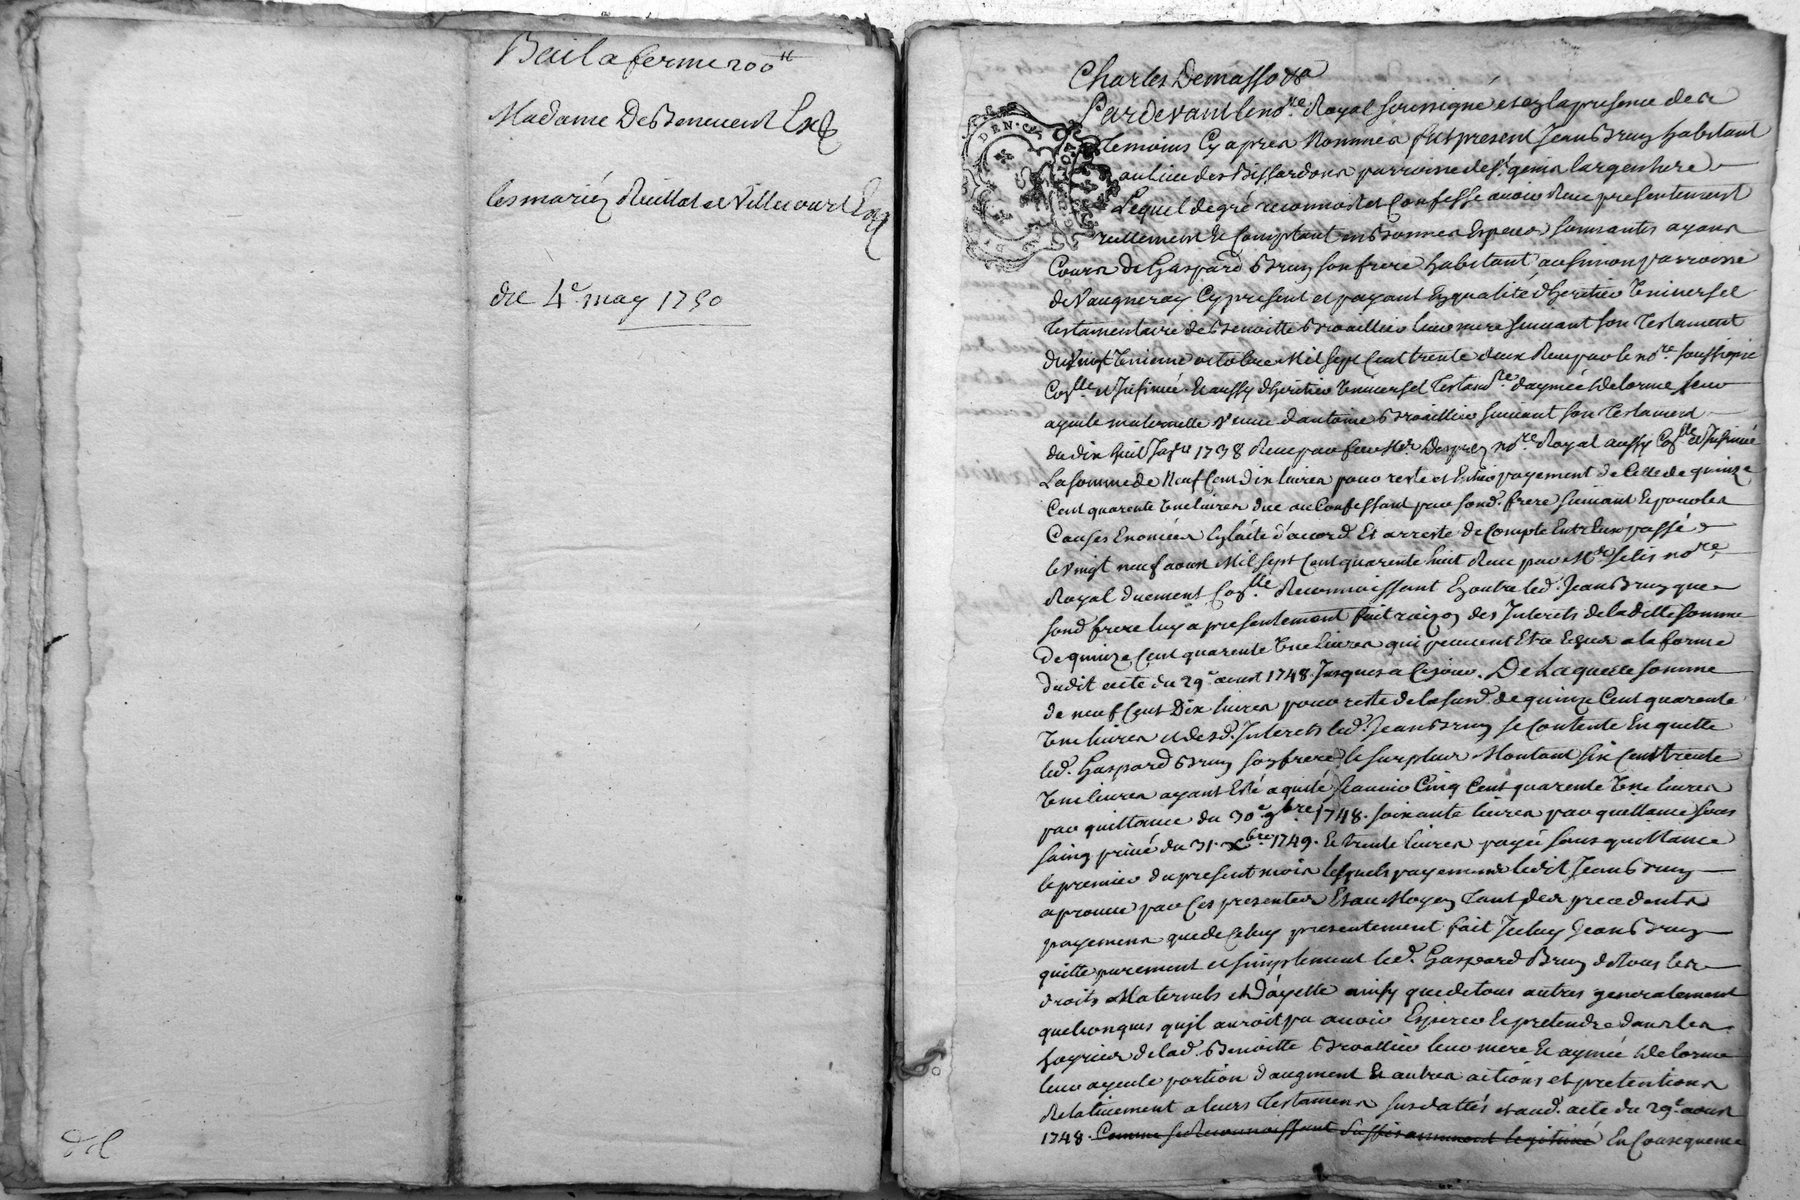 Bail a ferme 200 tt
Madame De Benevent
les mariéz Reillat et Villecourt
du 4e may 1750
DEN. C
Charles Demasso
Pardevant le nore. Royal soussigné et en la presence des
temoins Cy apres Nommés fut present Jean Bruy habitant
au lieu des Bissardons parroisse de St genis largentiere
Lequel de gré reconnoit et Confesse avoir Reçu presentement
reellement et Comptant en Bonnes Especes sonnantes ayans
Cours de Gaspard Bruy son frere habitant au Simon parroisse
de Vaugneray Cy present et payant En qualité d'heritier Universel
Testamentaire de Benoitte Broallier leur mere suivant son Testament
du Vingt Unieme octobre Mil sept Cent trente deux Reçu par le nore. soussigné
Coslle. et Insinué Et aussy d'heritier Universel testamre. d'aymée Delorme leur
ayeule maternelle Veuve d'antoine Broallier suivant son Testament
du dix huit 1738 Reçu par feu Me. nore. Royal aussy Coslle. et Insinué
La somme de Neuf Cent dix livres pour reste et Entier payement de Celle de quinze
Cent quarente Une livres due au Confessant par sond. frere suivant Et pour les
Causes Enoncées En l'acte d'accord Et arresté de Compte Entr'Eux passé
le Vingt neuf aoust Mil sept Cent quarente huit Reçu par Me. nore.
Royal duement Coslle. Reconnoissant En outre led. Jean Bruy que
sond. frere luy a presentement fait raison des Interets de la ditte somme
de quinze Cent quarente Une livres qui peuvent Etre Echus a la forme
dudit acte du 29e. aoust 1748. Jusques a Ce jour. De Laquelle somme
de neuf Cent Dix livres pour reste de la susd. de quinze Cent quarente
Une livres et desd. Interets led. Jean Bruy se Contente En quitte
led. Gaspard Bruy son frere le surplus Montant six Cent trente
Une livres ayant Eté aquité scavoir Cinq Cent quarente Une livres
par quittance du 30e. 9bre. 1748. soixante livres par quittance sous
seing privé du 31. Xbre 1749. Et trente livres payée sous quittance
le premier du present mois lesquels payements ledit Jean Bruy
aprouve par Ces presentes Et au Moyen Tant des precedents
payemens que de Celuy presentement fait Iceluy Jean Bruy
quitte purement et simplement led. Gaspard Bruy de tous les
droits Maternels et D'ayelle ainsy que de tous autres generalement
quelconques qu'jl auroit pu avoir Esperer Et pretendre dans les
hoyries de lad. Benoitte Broallier leur mere Et aymée Delorme
leur ayeule portion d'augment Et autres actions et pretentions
Relativement a leurs Testamens susdattés et aud. acte du 29e. aoust
1748. Comme se Reconnoissant suffisamment legitimé En Consequence